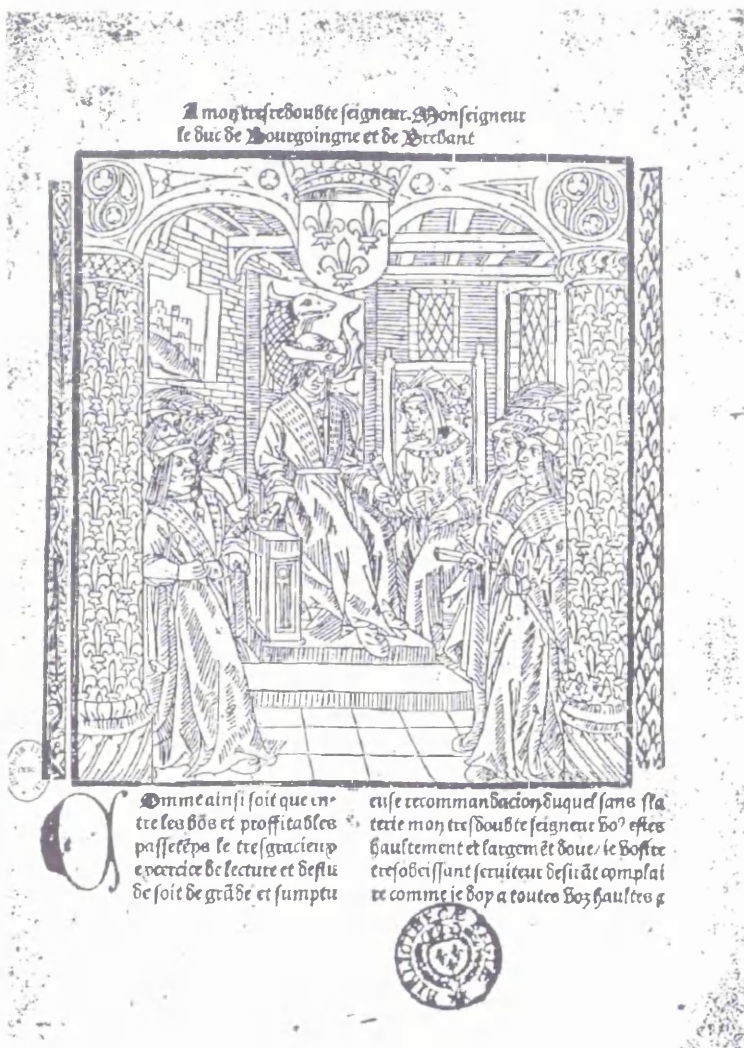 A mon tresredoubte seigneur. Monseigneur
le duc de Bourgoingne et de Brebant
Omme ainsi soit que en-
tre les bõs et proffitables
passetẽps le tresgracieux
exercice de lecture et destu
de soit de grãde et sumptu
euse recommandacion duquel sans fla
terie mon tresdoubte seigneur voꝰ estes
haultement et largemẽt doue / ie vostre
tresobeissant seruiteur desirãt complai
re comme je doy a toutes voz haultes ⁊